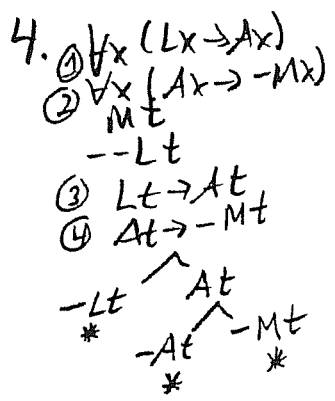 4. ① ∀x (Lx→Ax)
② ∀x (Ax→-Mx)
Mt
--Lt
③ Lt→At
④ At→-Mt
-Lt At
* -At -Mt
* *